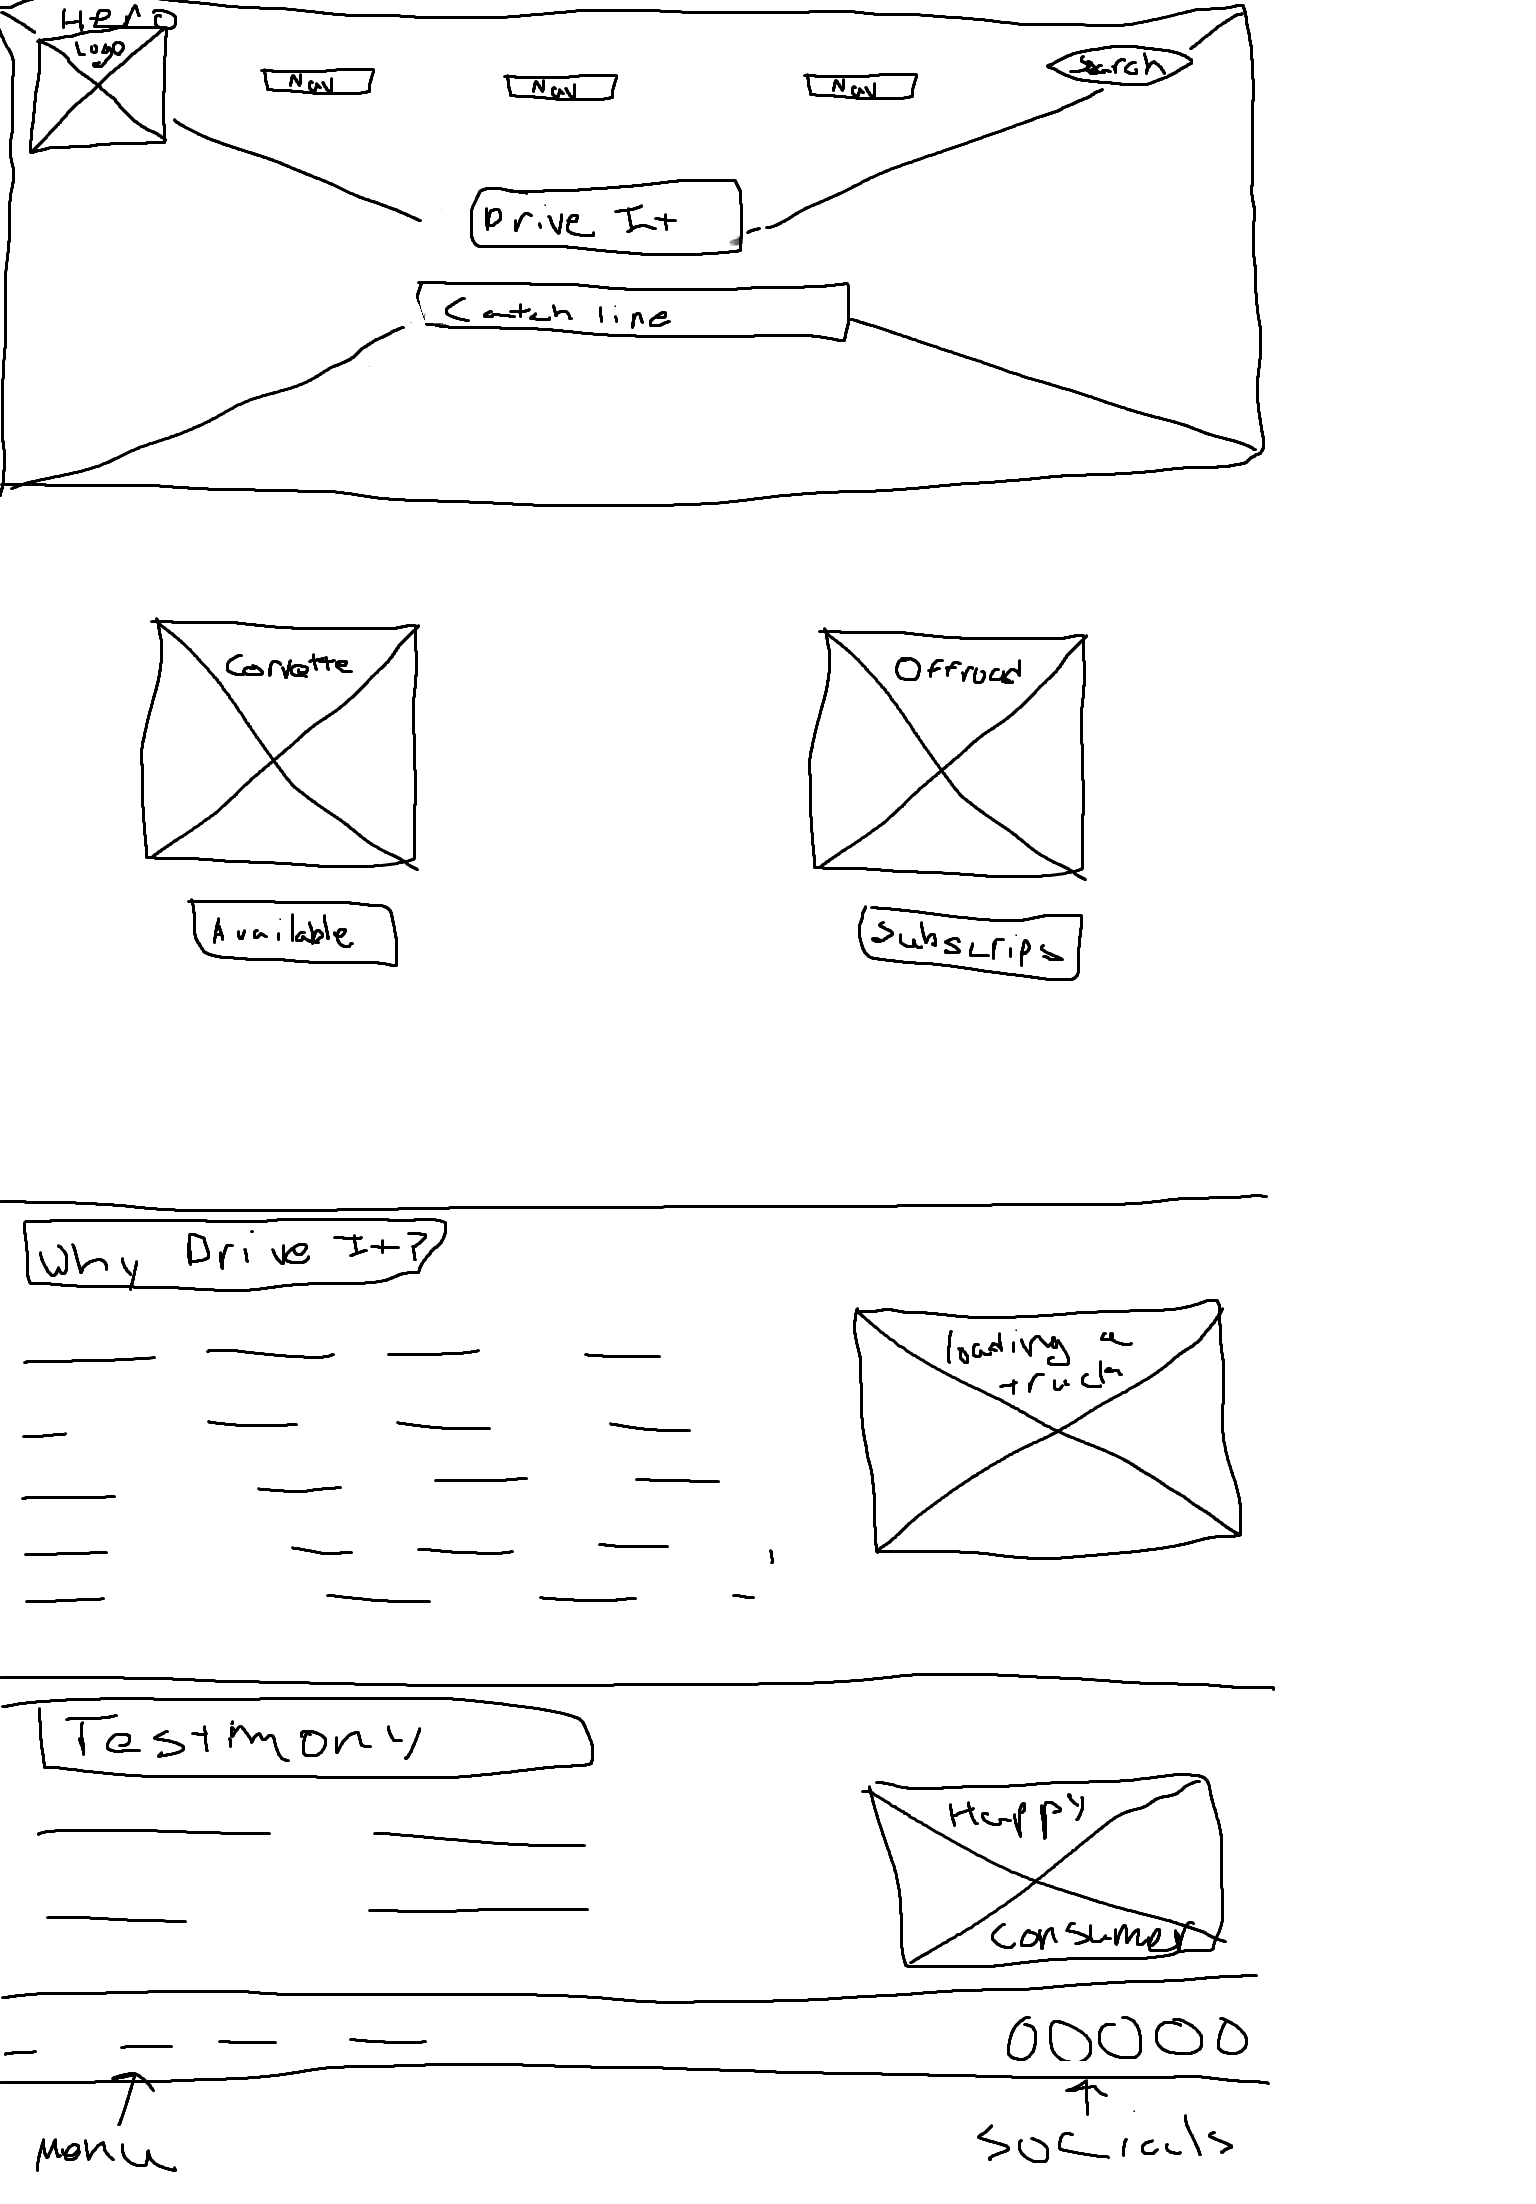 Hero
Logo
Nav
Nav
Nav
Search
Drive It
Catch line
Corvette
Offroad
Available
Subscrips
Why Drive It?
loading a
truck
Testimony
Happy
Consumer
Menu
Socials